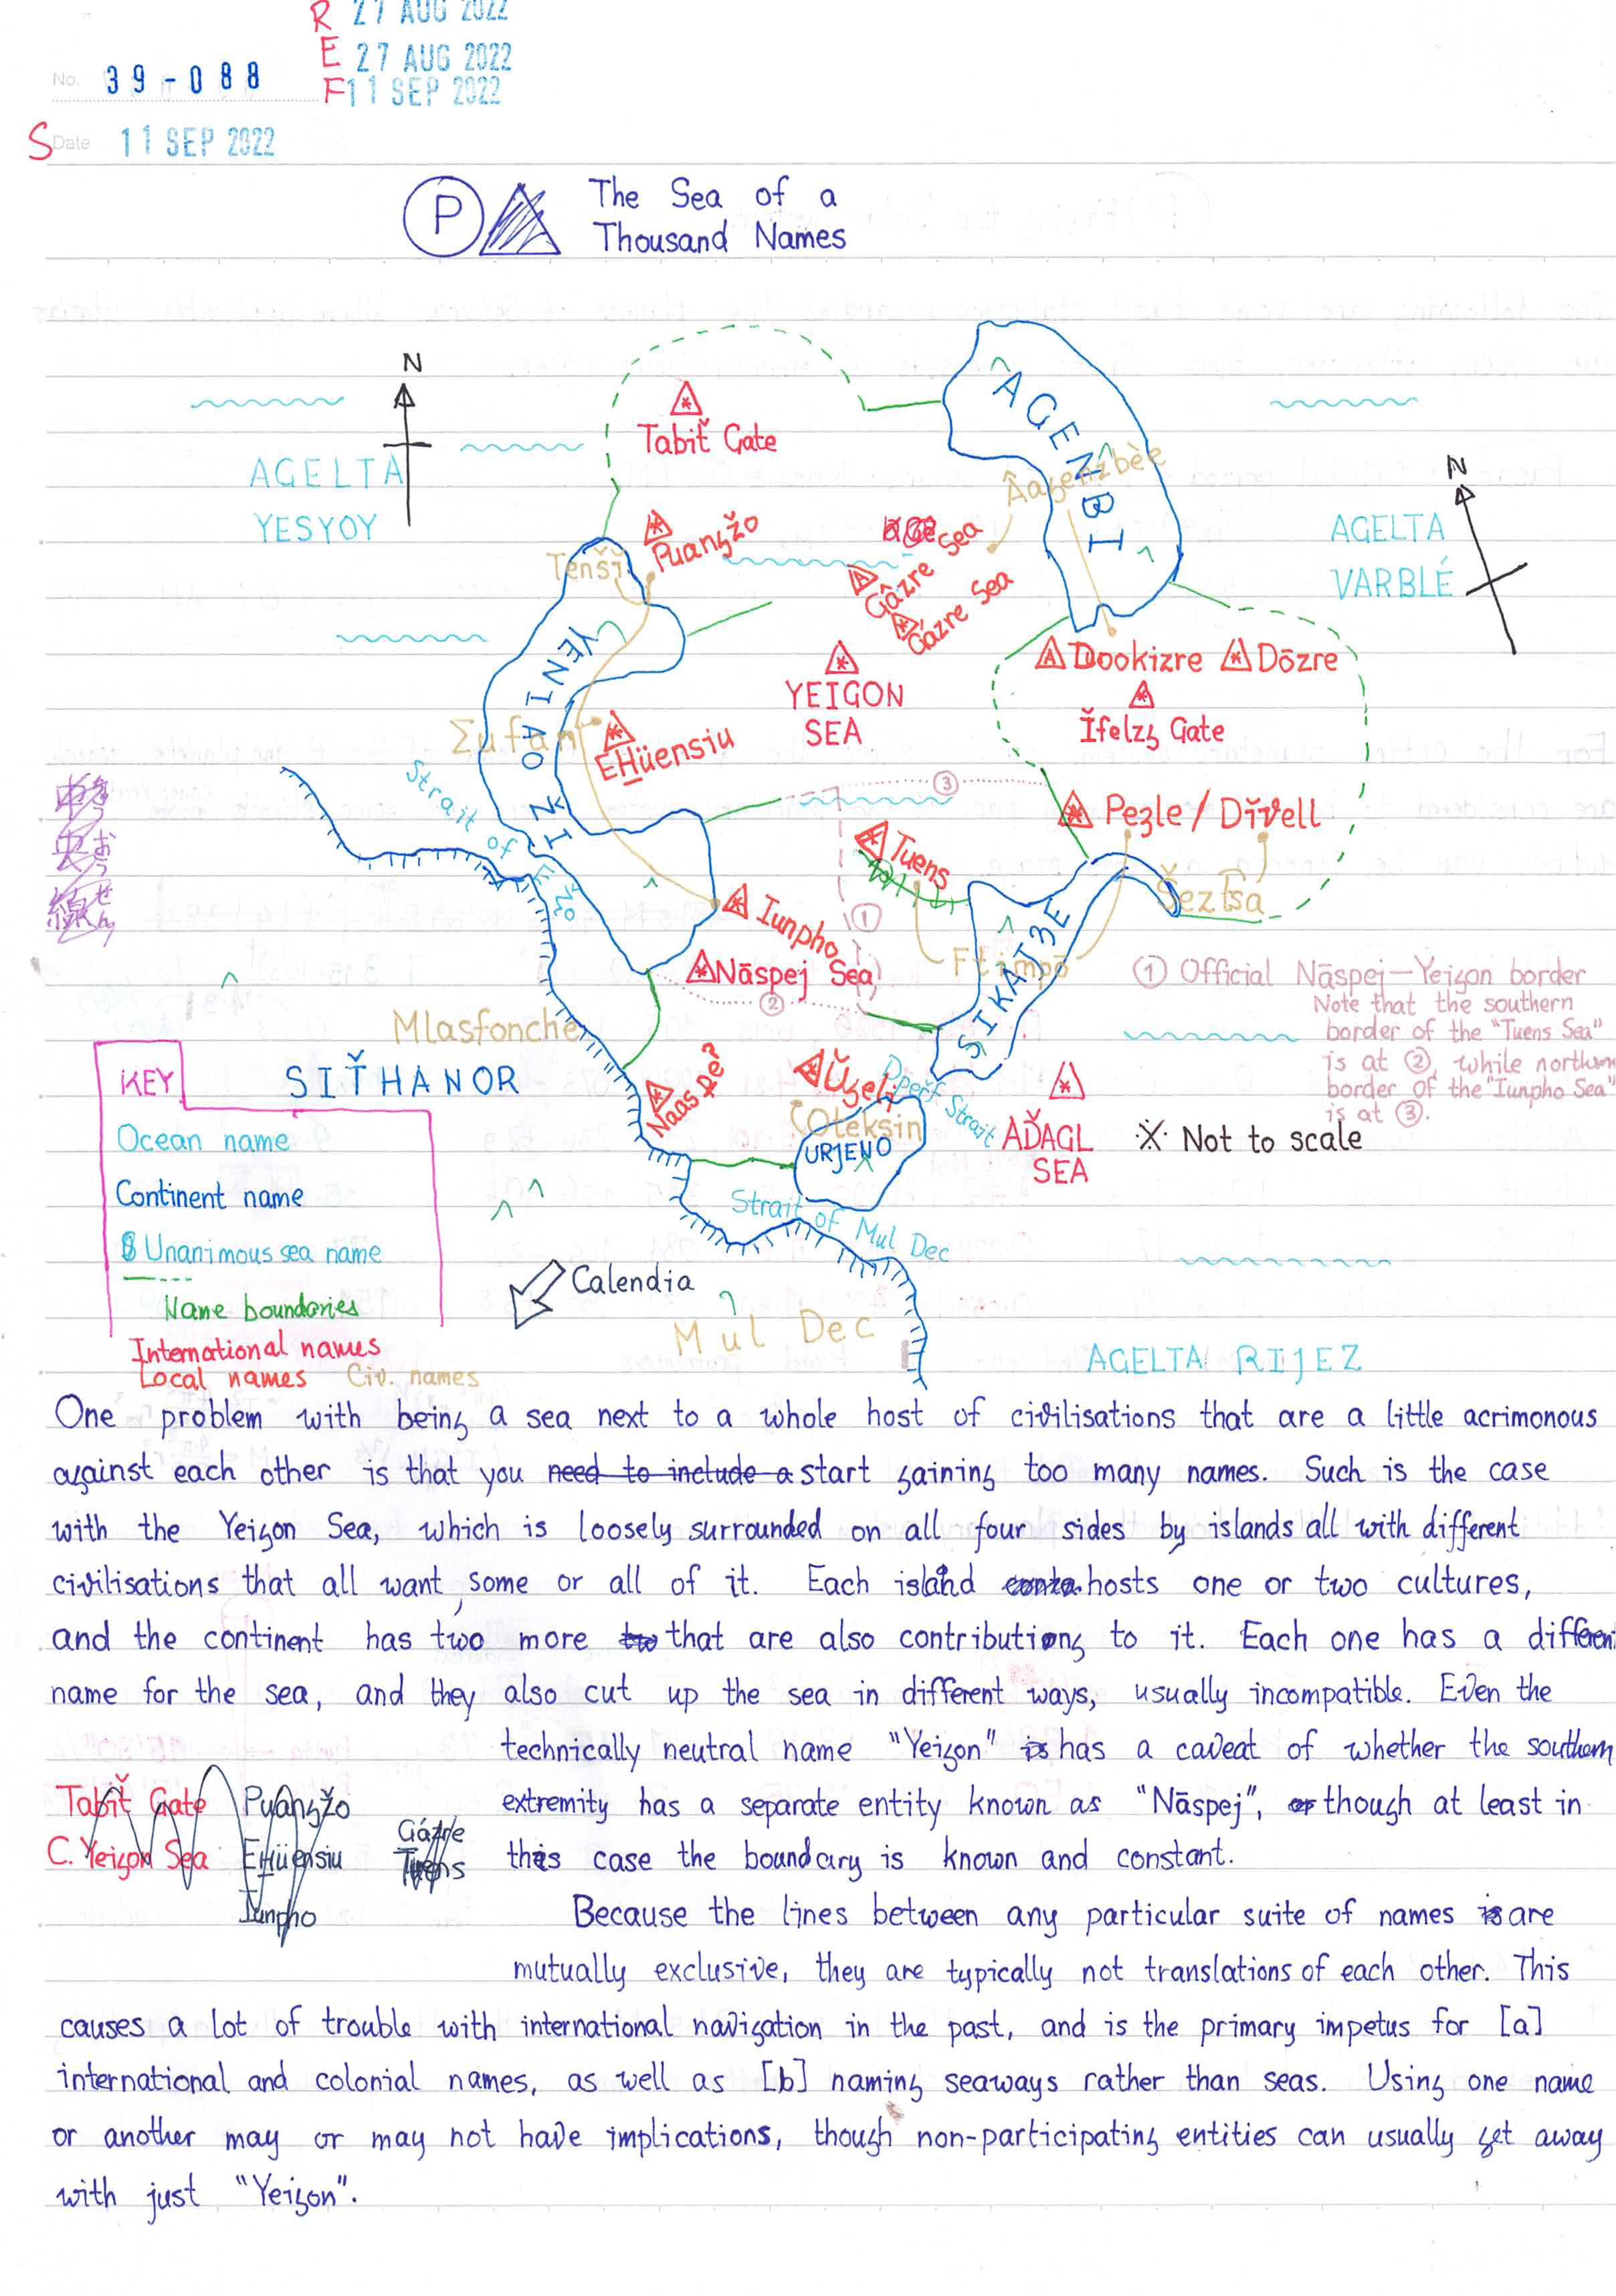 R 27 AUG 2022
E 27 AUG 2022
F 11 SEP 2022
No. 39-088
S Date 11 SEP 2022
P
The Sea of a
Thousand Names
N
AGELTA
YESYOY
Tabiť Gate
AGENBI
Âagenzbèe
N
AGELTA
VARBLÉ
Tenšǐ
Puangžo
Gâzre Sea
Gázre Sea
YENIAO ŽI
YEIGON
SEA
Dookizre
Dōzre
Ǐfelzg Gate
Σufan
EHüensiu
Strait of
③
Pezle / Dǐvell
中央線
おう
せん
Tuens
Šezťsa
①
Iunpho
Ftimpō
SIKATJE
Nāspej Sea
②
① Official Nāspej–Yeigon border
Note that the southern
border of the "Tuens Sea"
is at ②, while northern
border of the "Iunpho Sea"
is at ③.
Mlasfonche
SIŤHANOR
Naaspe?
Ǔgelj
Strait
Oteksin
URJENO
AĎAGL
SEA
※ Not to scale
KEY
Ocean name
Continent name
Unanimous sea name
Name boundaries
International names
Local names
Civ. names
Strait of Mul Dec
Calendia
Mul Dec
AGELTA RIJEZ
One problem with being a sea next to a whole host of civilisations that are a little acrimonous
against each other is that you need to include a start gaining too many names. Such is the case
with the Yeigon Sea, which is loosely surrounded on all four sides by islands all with different
civilisations that all want some or all of it. Each island conta hosts one or two cultures,
and the continent has two more two that are also contributing to it. Each one has a different
name for the sea, and they also cut up the sea in different ways, usually incompatible. Even the
technically neutral name "Yeigon" is has a caveat of whether the southern
extremity has a separate entity known as "Nāspej", or though at least in
this case the boundary is known and constant.
Tabiť Gate
C. Yeigon Sea
Puangžo
EHüensiu
Iunpho
Gázre
Tuens
Because the lines between any particular suite of names is are
mutually exclusive, they are typically not translations of each other. This
causes a lot of trouble with international navigation in the past, and is the primary impetus for [a]
international and colonial names, as well as [b] naming seaways rather than seas. Using one name
or another may or may not have implications, though non-participating entities can usually get away
with just "Yeigon".